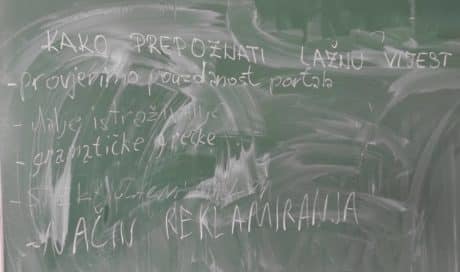 KAKO PREPOZNATI LAŽNU VIJEST
- provjerimo pouzdanost portala
- dalje istraživanje
- gramatičke greške
-
- NAČIN REKLAMIRANJA